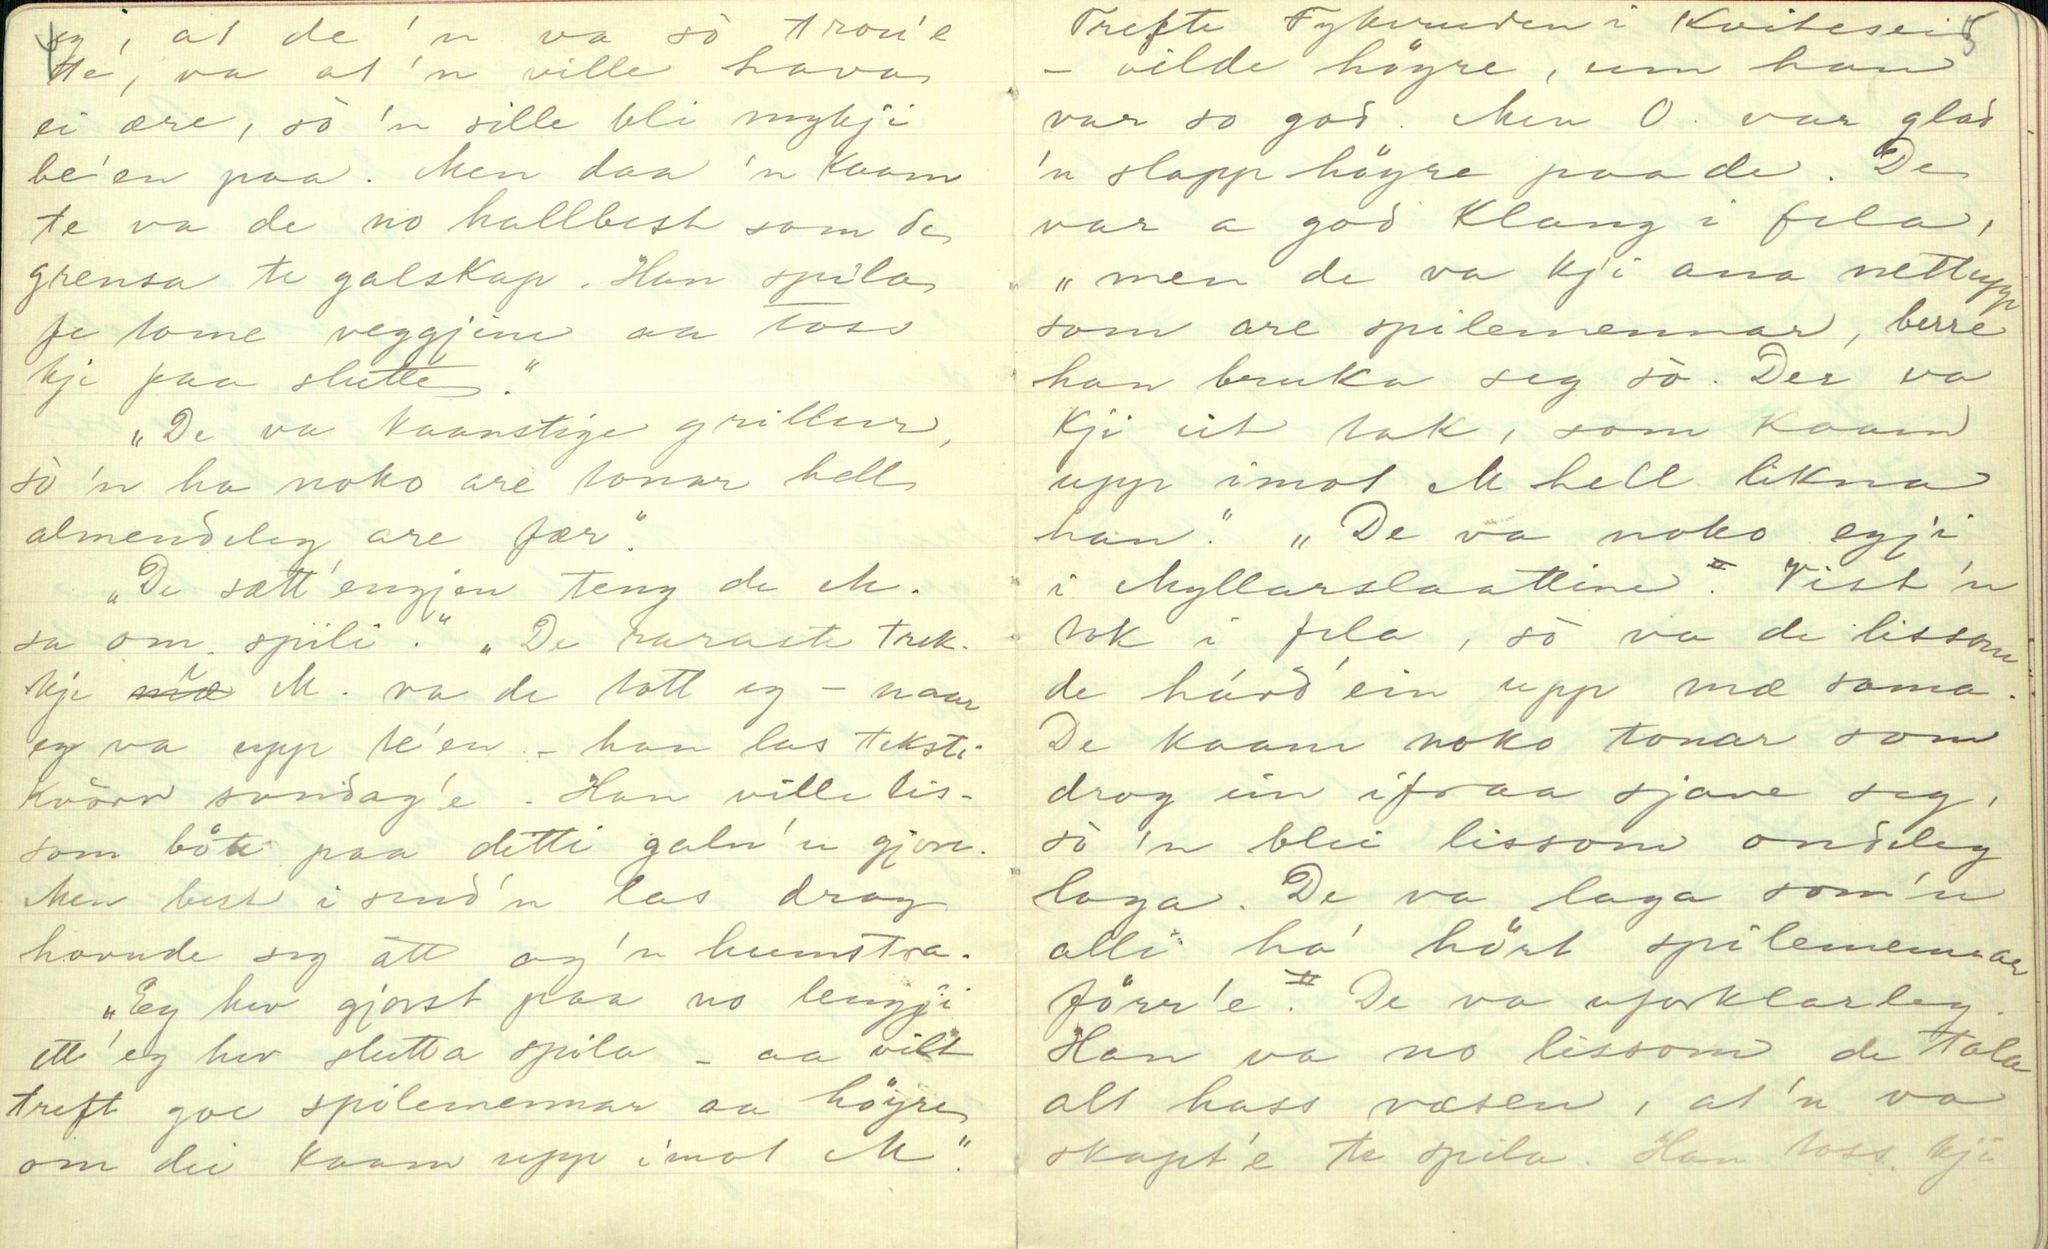 4
eg, at de 'n va sò trou'e
tte, va at 'n ville hava
ei ære, sò 'n sille bli mykji
be'en paa. Men daa 'n kaam
te va de no hallbest som de
grensa te galskap. Han spila
fe tome veggjine aa toss
kji paa slutte."
"De va kaanstige grillur,
sò 'n ha noko are tonar hell
almendeleg are fær."
"De sætt'engjen teng de M.
sa om spili." "De raraste trek-
kje i M. va de tott eg - naar
eg va upp te'en - han las teksti
kvòrn sondag'e. Han ville lis-
som böte paa ditti galn'n gjore.
Men best i smd'n las drog
hovude seg att og 'n humstra.
"Eg hev gjorst paa no lengji
ette eg hev slutta spila - aa vilt
treft goe spilemennar aa höyre
om dei kaam upp imot M".
5
Trefte Fykeruden i Kviteseid
- vilde höyre, um han
var so god. Men O. var glad
'n slapp höyre paa de. De
var a god klang i fela,
"men de va kji ana nettupp
som are spilemennar, berre
han bruka seg sò. Der va
kji eit tak, som kaam
upp imot M hell likna
han." "De va noko egji
i Myllarslaattine". Vist 'n
tok i fela, sò va de lissom
de hávd'ein upp mæ soma.
De kaam noko tonar som
drog ein ifraa sjave seg,
sò 'n blei lissom ondeleg
laga. De va laga som'n
alli ha' hört spilemennar
förr'e". De va uforklarleg.
Han va no lissom de tala
alt hass væsen, at 'n va
skapt'e te spila. Han toss kji